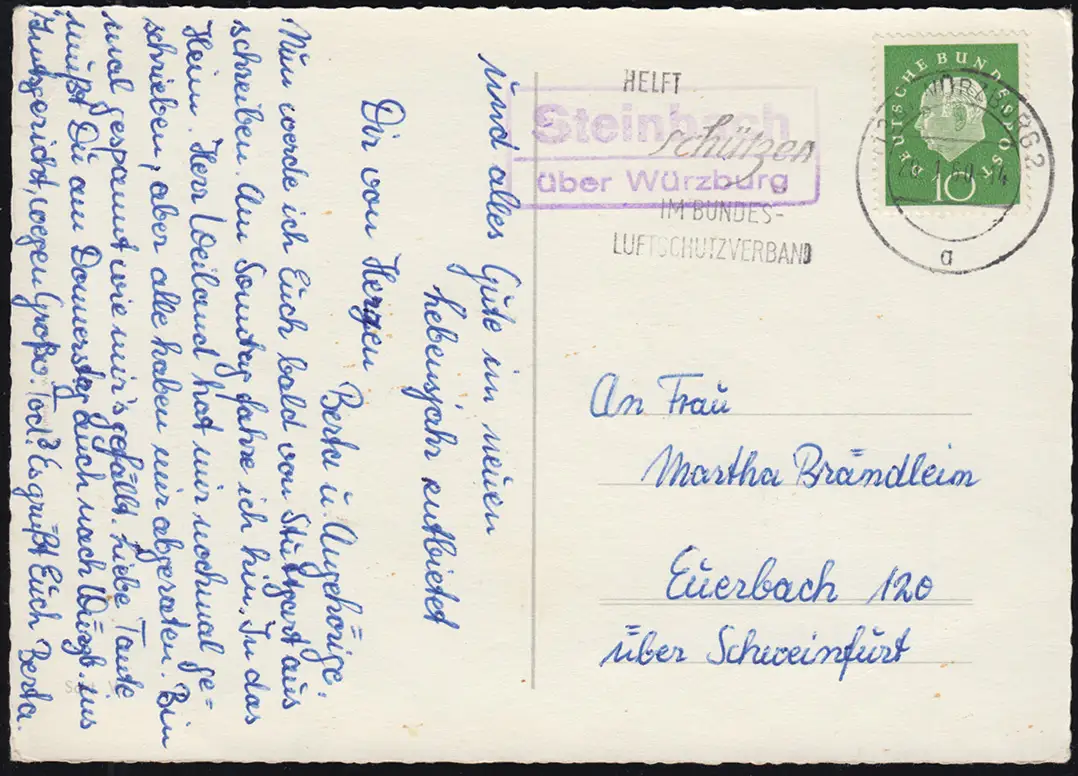 und alles Gute im neuen
Lebensjahr entbietet
Dir von Herzen
Berta u. Angehörige.
Nun werde ich Euch bald von Stuttgart aus
schreiben. Am Sonntag fahre ich hin. In das
Heim. Herr Weiland hat mir nochmal ge=
schrieben, aber alle haben mir abgeraten. Bin
mal gespannt wie mir's gefällt. Liebe Tante
mußt Du am Donnerstag auch nach Würzb. ins
wegen Großo. Es grüßt Euch Berta.
HELFT
schützen
IM BUNDES-
LUFTSCHUTZVERBAND
Steinbach
über Würzburg
DEUTSCHE BUNDESPOST
10
WÜRZBURG 2
29.1.60-14
a
An Frau
Martha Brändlein
Euerbach 120
über Schweinfurt